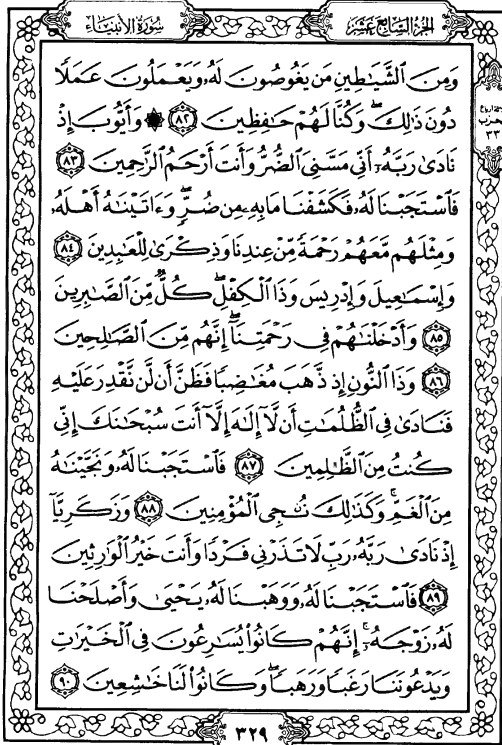 الجزء السابع عشر
سورة الأنبياء
وَمِنَ ٱلشَّيَـٰطِينِ مَن يَغُوصُونَ لَهُۥ وَيَعْمَلُونَ عَمَلًا
دُونَ ذَٰلِكَ ۖ وَكُنَّا لَهُمْ حَـٰفِظِينَ ٨٢ ۞ وَأَيُّوبَ إِذْ
نَادَىٰ رَبَّهُۥٓ أَنِّى مَسَّنِىَ ٱلضُّرُّ وَأَنتَ أَرْحَمُ ٱلرَّٰحِمِينَ ٨٣
فَٱسْتَجَبْنَا لَهُۥ فَكَشَفْنَا مَا بِهِۦ مِن ضُرٍّ ۖ وَءَاتَيْنَـٰهُ أَهْلَهُۥ
وَمِثْلَهُم مَّعَهُمْ رَحْمَةً مِّنْ عِندِنَا وَذِكْرَىٰ لِلْعَـٰبِدِينَ ٨٤
وَإِسْمَـٰعِيلَ وَإِدْرِيسَ وَذَا ٱلْكِفْلِ ۖ كُلٌّ مِّنَ ٱلصَّـٰبِرِينَ
٨٥ وَأَدْخَلْنَـٰهُمْ فِى رَحْمَتِنَآ ۖ إِنَّهُم مِّنَ ٱلصَّـٰلِحِينَ
٨٦ وَذَا ٱلنُّونِ إِذ ذَّهَبَ مُغَـٰضِبًا فَظَنَّ أَن لَّن نَّقْدِرَ عَلَيْهِ
فَنَادَىٰ فِى ٱلظُّلُمَـٰتِ أَن لَّآ إِلَـٰهَ إِلَّآ أَنتَ سُبْحَـٰنَكَ إِنِّى
كُنتُ مِنَ ٱلظَّـٰلِمِينَ ٨٧ فَٱسْتَجَبْنَا لَهُۥ وَنَجَّيْنَـٰهُ
مِنَ ٱلْغَمِّ ۚ وَكَذَٰلِكَ نُـۨجِى ٱلْمُؤْمِنِينَ ٨٨ وَزَكَرِيَّآ
إِذْ نَادَىٰ رَبَّهُۥ رَبِّ لَا تَذَرْنِى فَرْدًا وَأَنتَ خَيْرُ ٱلْوَٰرِثِينَ
٨٩ فَٱسْتَجَبْنَا لَهُۥ وَوَهَبْنَا لَهُۥ يَحْيَىٰ وَأَصْلَحْنَا
لَهُۥ زَوْجَهُۥٓ ۚ إِنَّهُمْ كَانُوا۟ يُسَـٰرِعُونَ فِى ٱلْخَيْرَٰتِ
وَيَدْعُونَنَا رَغَبًا وَرَهَبًا ۖ وَكَانُوا۟ لَنَا خَـٰشِعِينَ ٩٠
٣٢٩